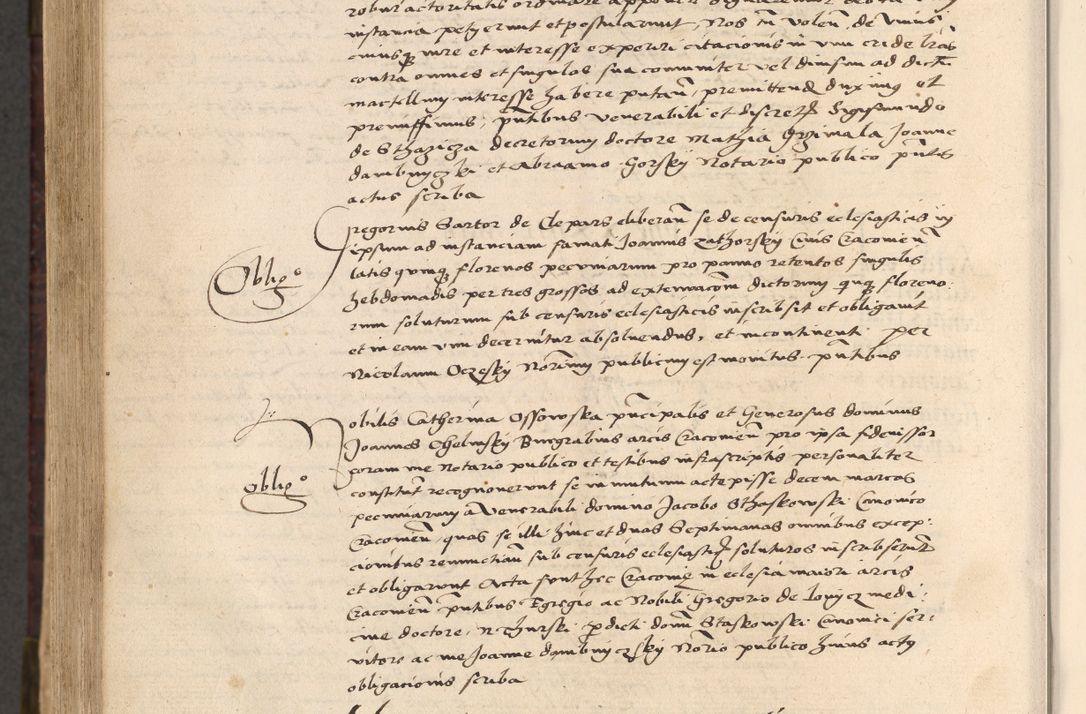 instancia petierunt et postularunt, Nos tn̄ volen̄ de unius
cuiusq̨ iure et interesse experiri citacionis in vim cride l̄ras
contra omnes et singulos sua communiter vel divisim ad dict̄
interesse habere putan̄, premittend duximus et
premissimus, pn̄tibus venerabili et discret Sigismundo
de Sthazicza decretorum doctore Mathia Grzimala Joanne
dambinyczki et Abraamo Gorsky Notario publico pn̄tis
actus scriba
Gregorius Sartor de Clepars eliberan̄ se de censuris eclesiasticis in
ipsum ad instanciam famati Joannis Zathorsky Civis Cracovien̄
latis quinq̨ florenos pecuniarum pro panno retentos singulis
hebdomadis per tres grossos ad extenuacōm dictorum quinq̨ floreno
rum soluturum sub censuris eclesiasticis inscribsit et obligavit
et in eam vim decernitur absolvendus, et incontinenti per
Nicolaum Oczesky Nōrium publicum est monitus pn̄tibus
Obligo
Nobilis Catherina Ossowska principalis et Generosus dominus
Joannes Chelmsky Burgrabius arcis Cracovien̄ pro ipsa fideiussor
coram me Notario publico et testibus infrascriptis personaliter
constitut recognoverunt se in mutuum accepisse decem marcas
pecuniarum a Venerabili domino Jacobo Sthaskowski Canonico
Cracovien̄, quas se illi hinc et duas Septimanas omnibus excep:
cionibus renunctian̄ sub censuris eclesiasticis soluturos inscribserunt
et obligarunt Acta sunt hec Cracovie in eclesia maiori arcis
Cracovien̄ pn̄tibus Egregio ac Nobili Gregorio de Lovicz medi:
cine doctore, N Zhurski p̱dicti domī Staskowski Canonici ser:
vitore ac me Joanne dambinyczky Nōrio publico huius actus
obligacionis scriba
Obligo